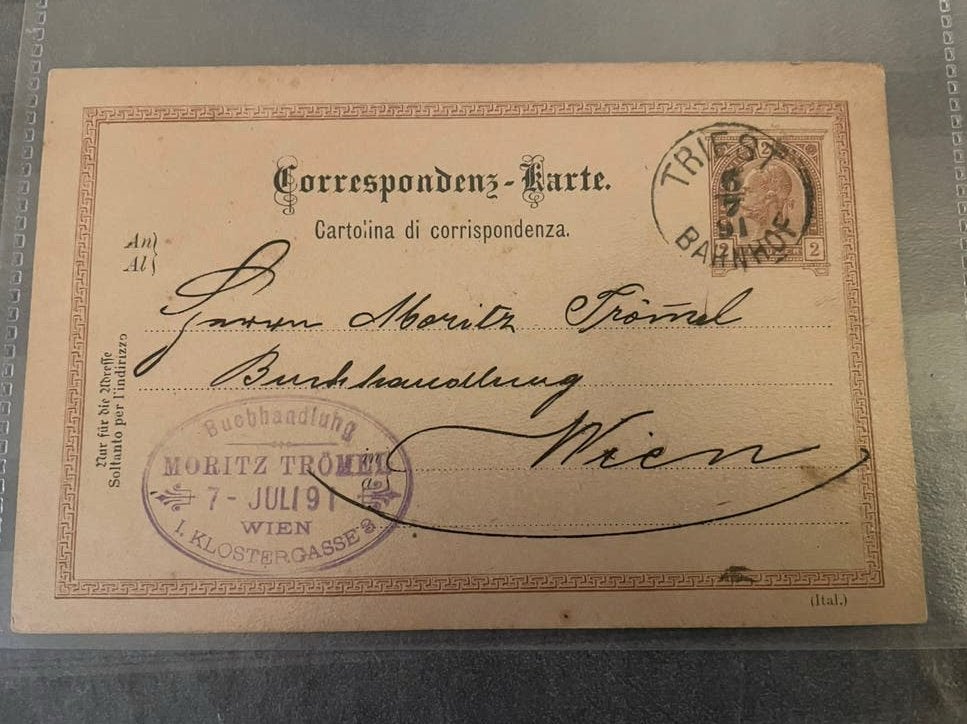 Correspondenz-Karte.
Cartolina di corrispondenza.
TRIEST
6
7
91
BAHNHOF
2
2 2
An
Al
Herrn Moritz Trömel
Buchhandlung
Wien
Nur für die Adresse
Soltanto per l'indirizzo
Buchhandlung
MORITZ TRÖMEL
7 - JULI 91
WIEN
I. KLOSTERGASSE 2
(Ital.)